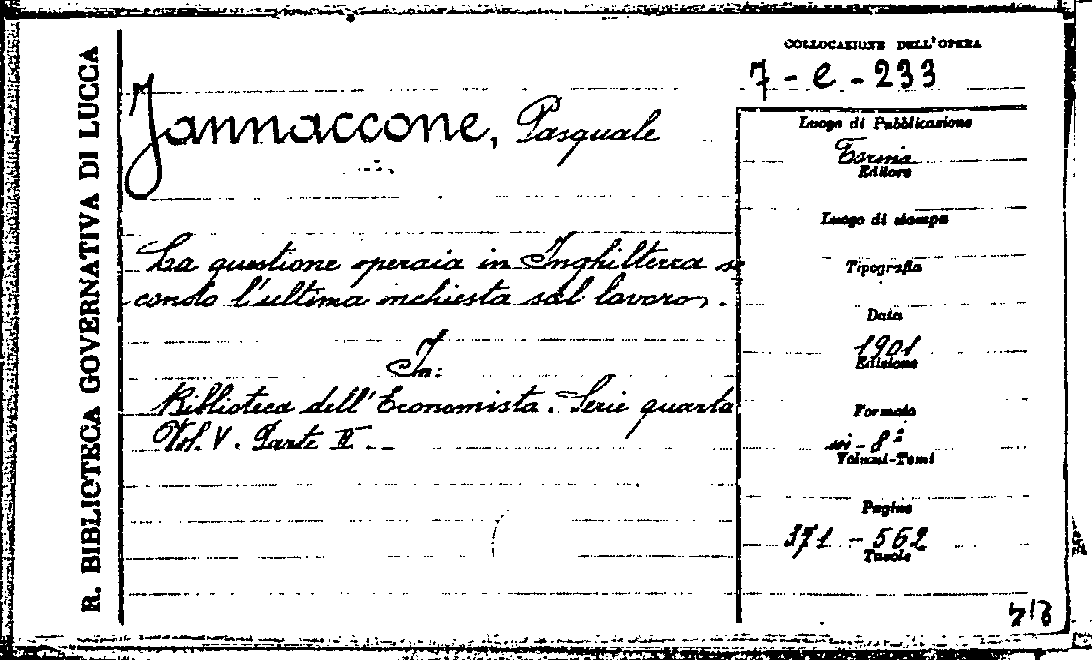 R. BIBLIOTECA GOVERNATIVA DI LUCCA
COLLOCAZIONE DELL'OPERA
7 - e - 233
Jannaccone, Pasquale
La questione operaia in Inghilterra se
condo l'ultima inchiesta sul lavoro.
In:
Biblioteca dell'Economista. Serie quarta
Vol. V. Parte II
Luogo di Pubblicazione
Torino
Editore
Luogo di stampa
Tipografia
Data
1901
Edizione
Formato
in-8º
Volumi-Tomi
Pagine
371 - 562
Tavole